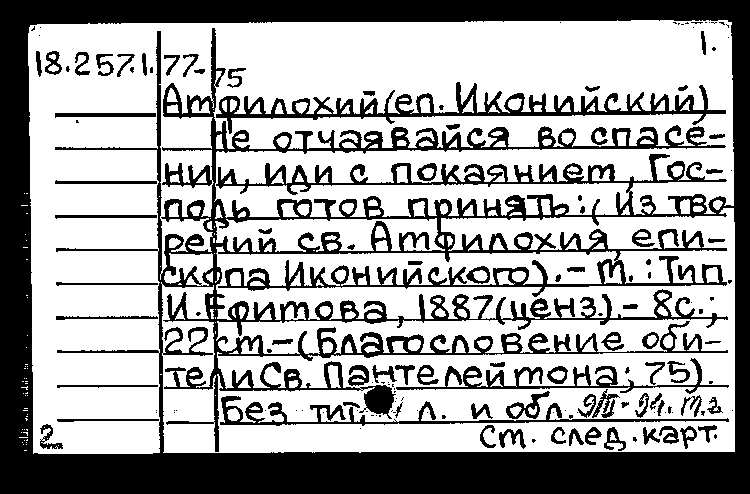 1.
18.257.1. 77-75
Амфилохий (еп. Иконийский)
Не отчаявайся во спасе-
нии, иди с покаянием, Гос-
подь готов принять: (Из тво-
рений св. Амфилохия, епи-
скопа Иконийского). - М. : Тип.
И. Ефимова, 1887 (ценз.). - 8с.;
22см. - (Благословение оби-
тели Св. Пантелеймона; 75).
Без тит. л. и обл.
2 См. след. карт.